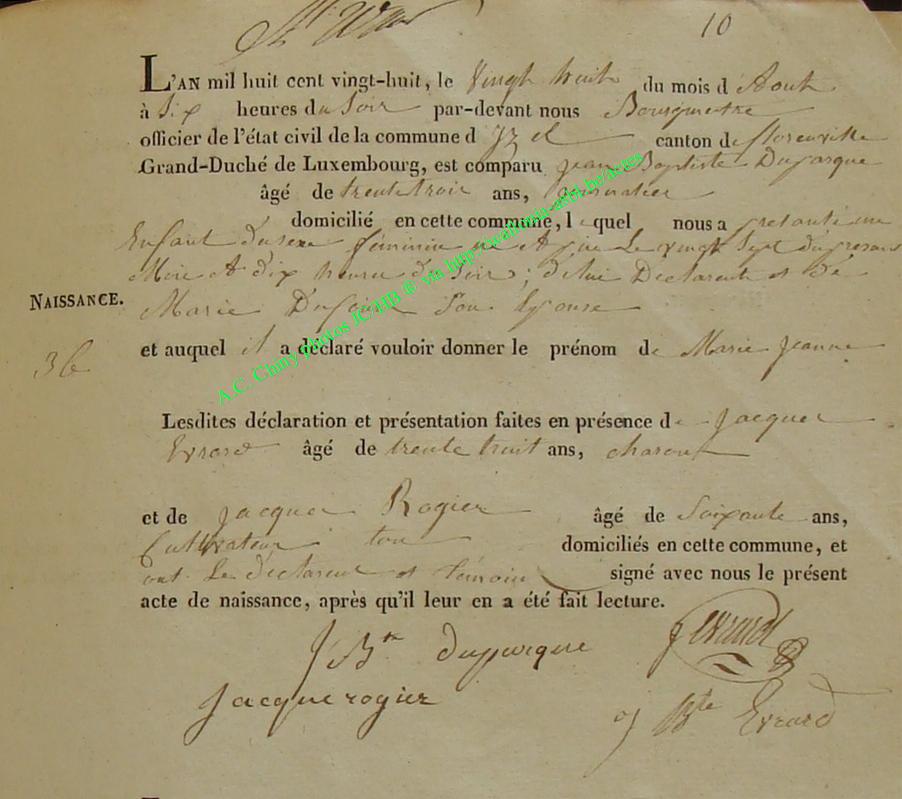 10
L'AN mil huit cent vingt-huit, le Vingt huit du mois d Aout
à Six heures du Soir par-devant nous Bourgmestre
officier de l'état civil de la commune d Yzel canton de florenville
Grand-Duché de Luxembourg, est comparu jean Baptiste Duparque
âgé de trente trois ans,
domicilié en cette commune, lequel nous a présenté un
Enfant du sexe féminin né A Le vingt Sept du présent
Mois A dix heures du Soir; de lui Déclarant et de
Marie Son Epouse
NAISSANCE.
et auquel il a déclaré vouloir donner le prénom de Marie Jeanne
36
Lesdites déclaration et présentation faites en présence de Jacques
Evrard âgé de trente huit ans, charon
et de Jacques Rogier âgé de Soixante ans,
Cultivateur tou domiciliés en cette commune, et
ont Le déclarent et témoin signé avec nous le présent
acte de naissance, après qu'il leur en a été fait lecture.
J Bte dupparque J Evrard
Jacque rogier J Bte Evrard
A.C. Chiny photos IC/HB ® via http://wallonia-asbl.be/actes